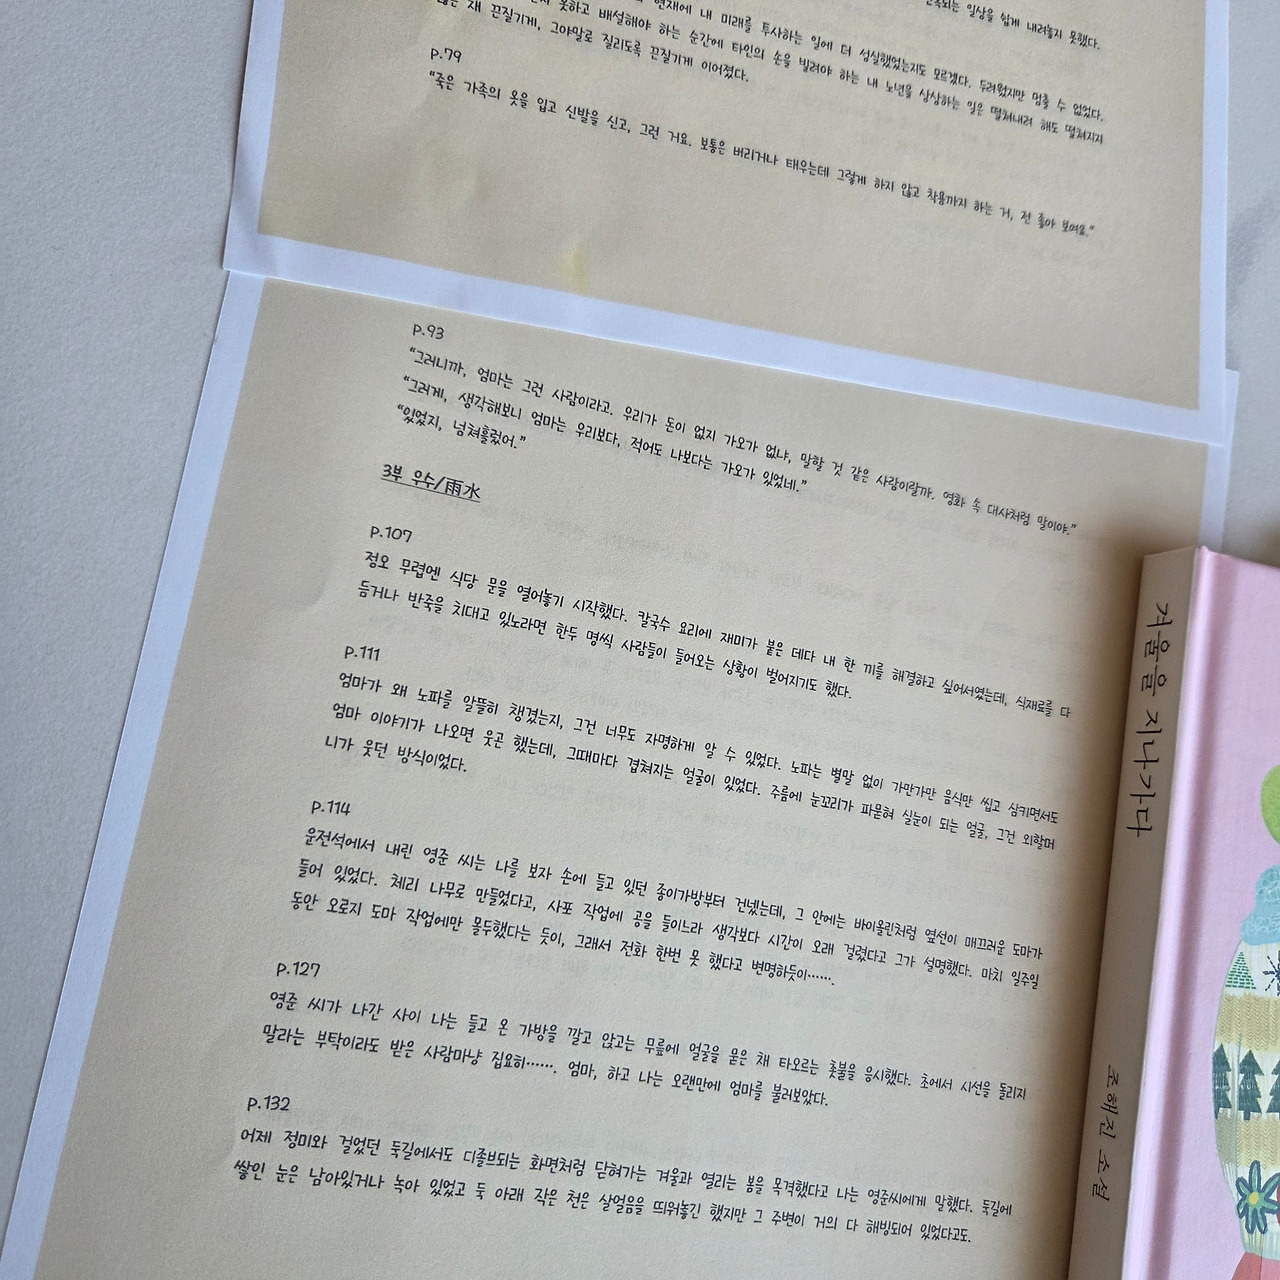 현재에 내 미래를 투사하는 일에 더 성실했었는지도 모르겠다. 두려웠지만 멈출 수 없었다.
일상을 쉽게 내려놓지 못했다.
못하고 배설해야 하는 순간에 타인의 손을 빌려야 하는 내 노년을 상상하는 일은 떨쳐내려 해도 떨쳐지지
않은 채 끈질기게, 그야말로 질리도록 끈질기게 이어졌다.
p.79
“죽은 가족의 옷을 입고 신발을 신고, 그런 거요. 보통은 버리거나 태우는데 그렇게 하지 않고 착용까지 하는 거, 전 좋아 보여요.”
p.93
“그러니까, 엄마는 그런 사람이라고. 우리가 돈이 없지 가오가 없냐, 말할 것 같은 사람이랄까. 영화 속 대사처럼 말이야.”
“그러게, 생각해보니 엄마는 우리보다, 적어도 나보다는 가오가 있었네.”
“있었지, 넘쳐흘렀어.”
3부 우수/雨水
p.107
정오 무렵엔 식당 문을 열어놓기 시작했다. 칼국수 요리에 재미가 붙은 데다 내 한 끼를 해결하고 싶어서였는데, 식재료를 다
듬거나 반죽을 치대고 있노라면 한두 명씩 사람들이 들어오는 상황이 벌어지기도 했다.
p.111
엄마가 왜 노파를 알뜰히 챙겼는지, 그건 너무도 자명하게 알 수 있었다. 노파는 별말 없이 가만가만 음식만 씹고 삼키면서도
엄마 이야기가 나오면 웃곤 했는데, 그때마다 겹쳐지는 얼굴이 있었다. 주름에 눈꼬리가 파묻혀 실눈이 되는 얼굴, 그건 외할머
니가 웃던 방식이었다.
p.114
운전석에서 내린 영준 씨는 나를 보자 손에 들고 있던 종이가방부터 건넸는데, 그 안에는 바이올린처럼 옆선이 매끄러운 도마가
들어 있었다. 체리 나무로 만들었다고, 사포 작업에 공을 들이느라 생각보다 시간이 오래 걸렸다고 그가 설명했다. 마치 일주일
동안 오로지 도마 작업에만 몰두했다는 듯이, 그래서 전화 한번 못 했다고 변명하듯이…….
p.127
영준 씨가 나간 사이 나는 들고 온 가방을 깔고 앉고는 무릎에 얼굴을 묻은 채 타오르는 촛불을 응시했다. 초에서 시선을 돌리지
말라는 부탁이라도 받은 사람마냥 집요히……. 엄마, 하고 나는 오랜만에 엄마를 불러보았다.
p.132
어제 정미와 걸었던 둑길에서도 디졸브되는 화면처럼 닫혀가는 겨울과 열리는 봄을 목격했다고 나는 영준씨에게 말했다. 둑길에
쌓인 눈은 남아있거나 녹아 있었고 둑 아래 작은 천은 살얼음을 띄워놓긴 했지만 그 주변이 거의 다 해빙되어 있었다고도.
겨울을 지나가다
조해진 소설